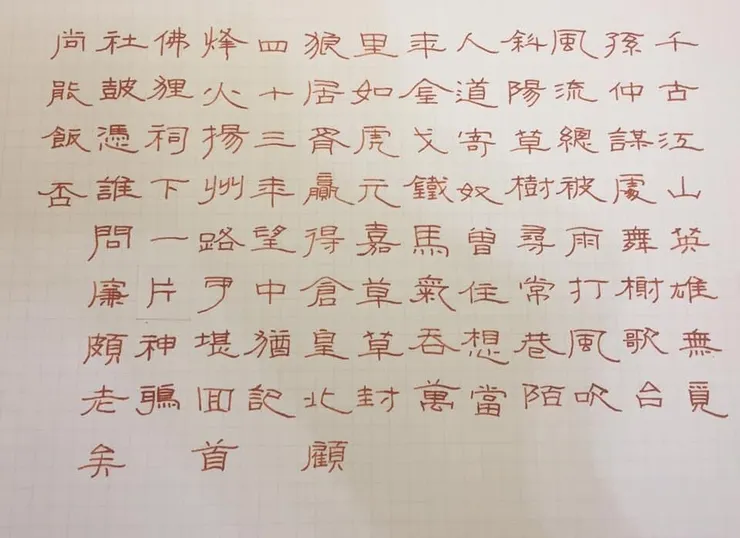 千古江山英雄無覓
孫仲謀處舞榭歌台
風流總被雨打風吹
斜陽草樹尋常巷陌
人道寄奴曾住想當
年金戈鐵馬氣吞萬
里如虎元嘉草草封
狼居胥贏得倉皇北顧
四十三年望中猶記
烽火揚州路可堪回首
佛狸祠下一片神鴉
社鼓憑誰問廉頗老矣
尚能飯否